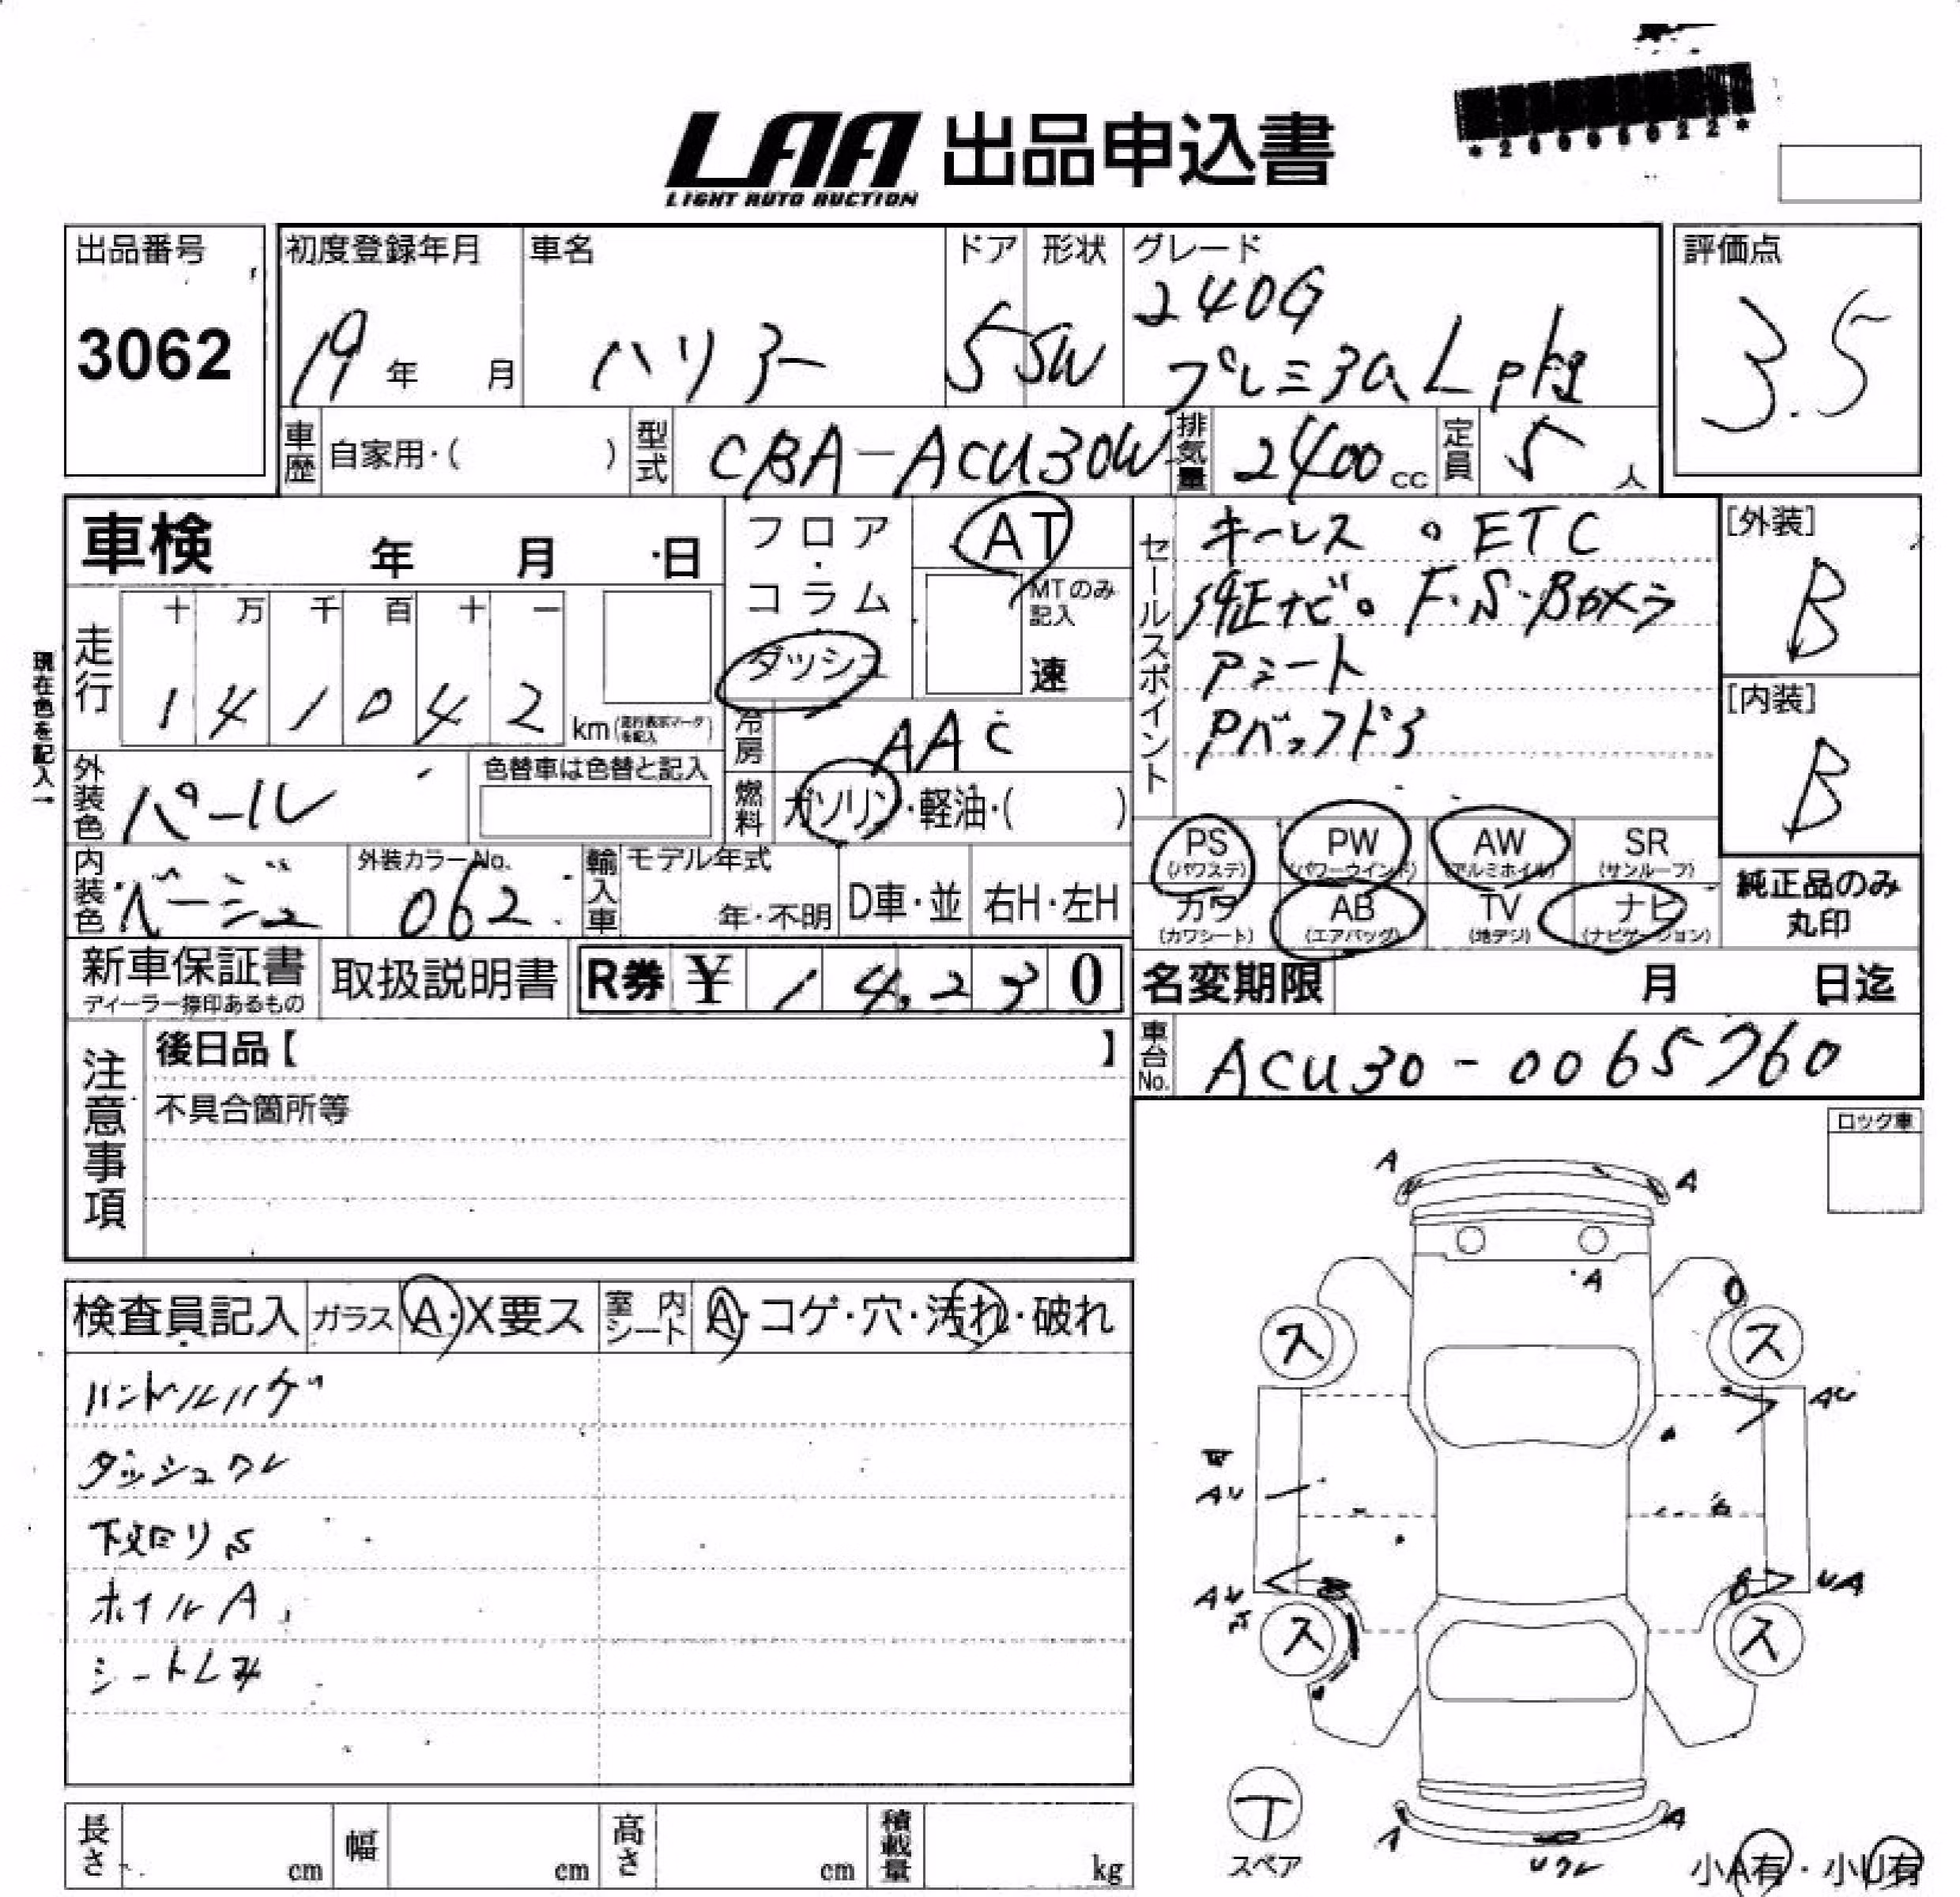 LAA 出品申込書
LIGHT AUTO AUCTION
*26006022*
出品番号
3062
初度登録年月
19年 月
車名
ハリアー
ドア
5
形状
SW
グレード
240G
プレミアム L pkg
評価点
3.5
車歴 自家用・( )
型式 CBA-ACU30W
排気量 2400cc
定員 5人
車検 年 月 日
フロア・コラム・ダッシュ
AT
MTのみ記入
速
現在色を記入→
走行
十 万 千 百 十 一
1 4 1 0 4 2 km (走行表示マークを記入)
冷房 AAC
燃料 ガソリン・軽油・( )
外装色 パール
色替車は色替と記入
内装色 ベージュ
外装カラーNo. 062
輸入車
モデル年式
年・不明
D車・並
右H・左H
セールスポイント
キーレス ・ETC
純正ナビ・F・S・Bカメラ
Pシート
Pバックドア
[外装]
B
[内装]
B
PS (パワステ)
PW (パワーウインド)
AW (アルミホイル)
SR (サンルーフ)
カワ (カワシート)
AB (エアバッグ)
TV (地デジ)
ナビ (ナビゲーション)
純正品のみ
丸印
新車保証書
ディーラー捺印あるもの
取扱説明書
R券 ¥ 14,230
名変期限 月 日迄
車台No. ACU30-0065760
注意事項
後日品【 】
不具合箇所等
ロック車
検査員記入
ガラス A・X要ス
室内シート A・コゲ・穴・汚れ・破れ
ハンドルハゲ
ダッシュワレ
下廻りS
ホイルA
シートシミ
A
A
A
ス
ス
AU
AU
AU
UA
ス
ス
A
A
Uワレ
T
スペア
小A有・小U有
長さ cm
幅 cm
高さ cm
積載量 kg